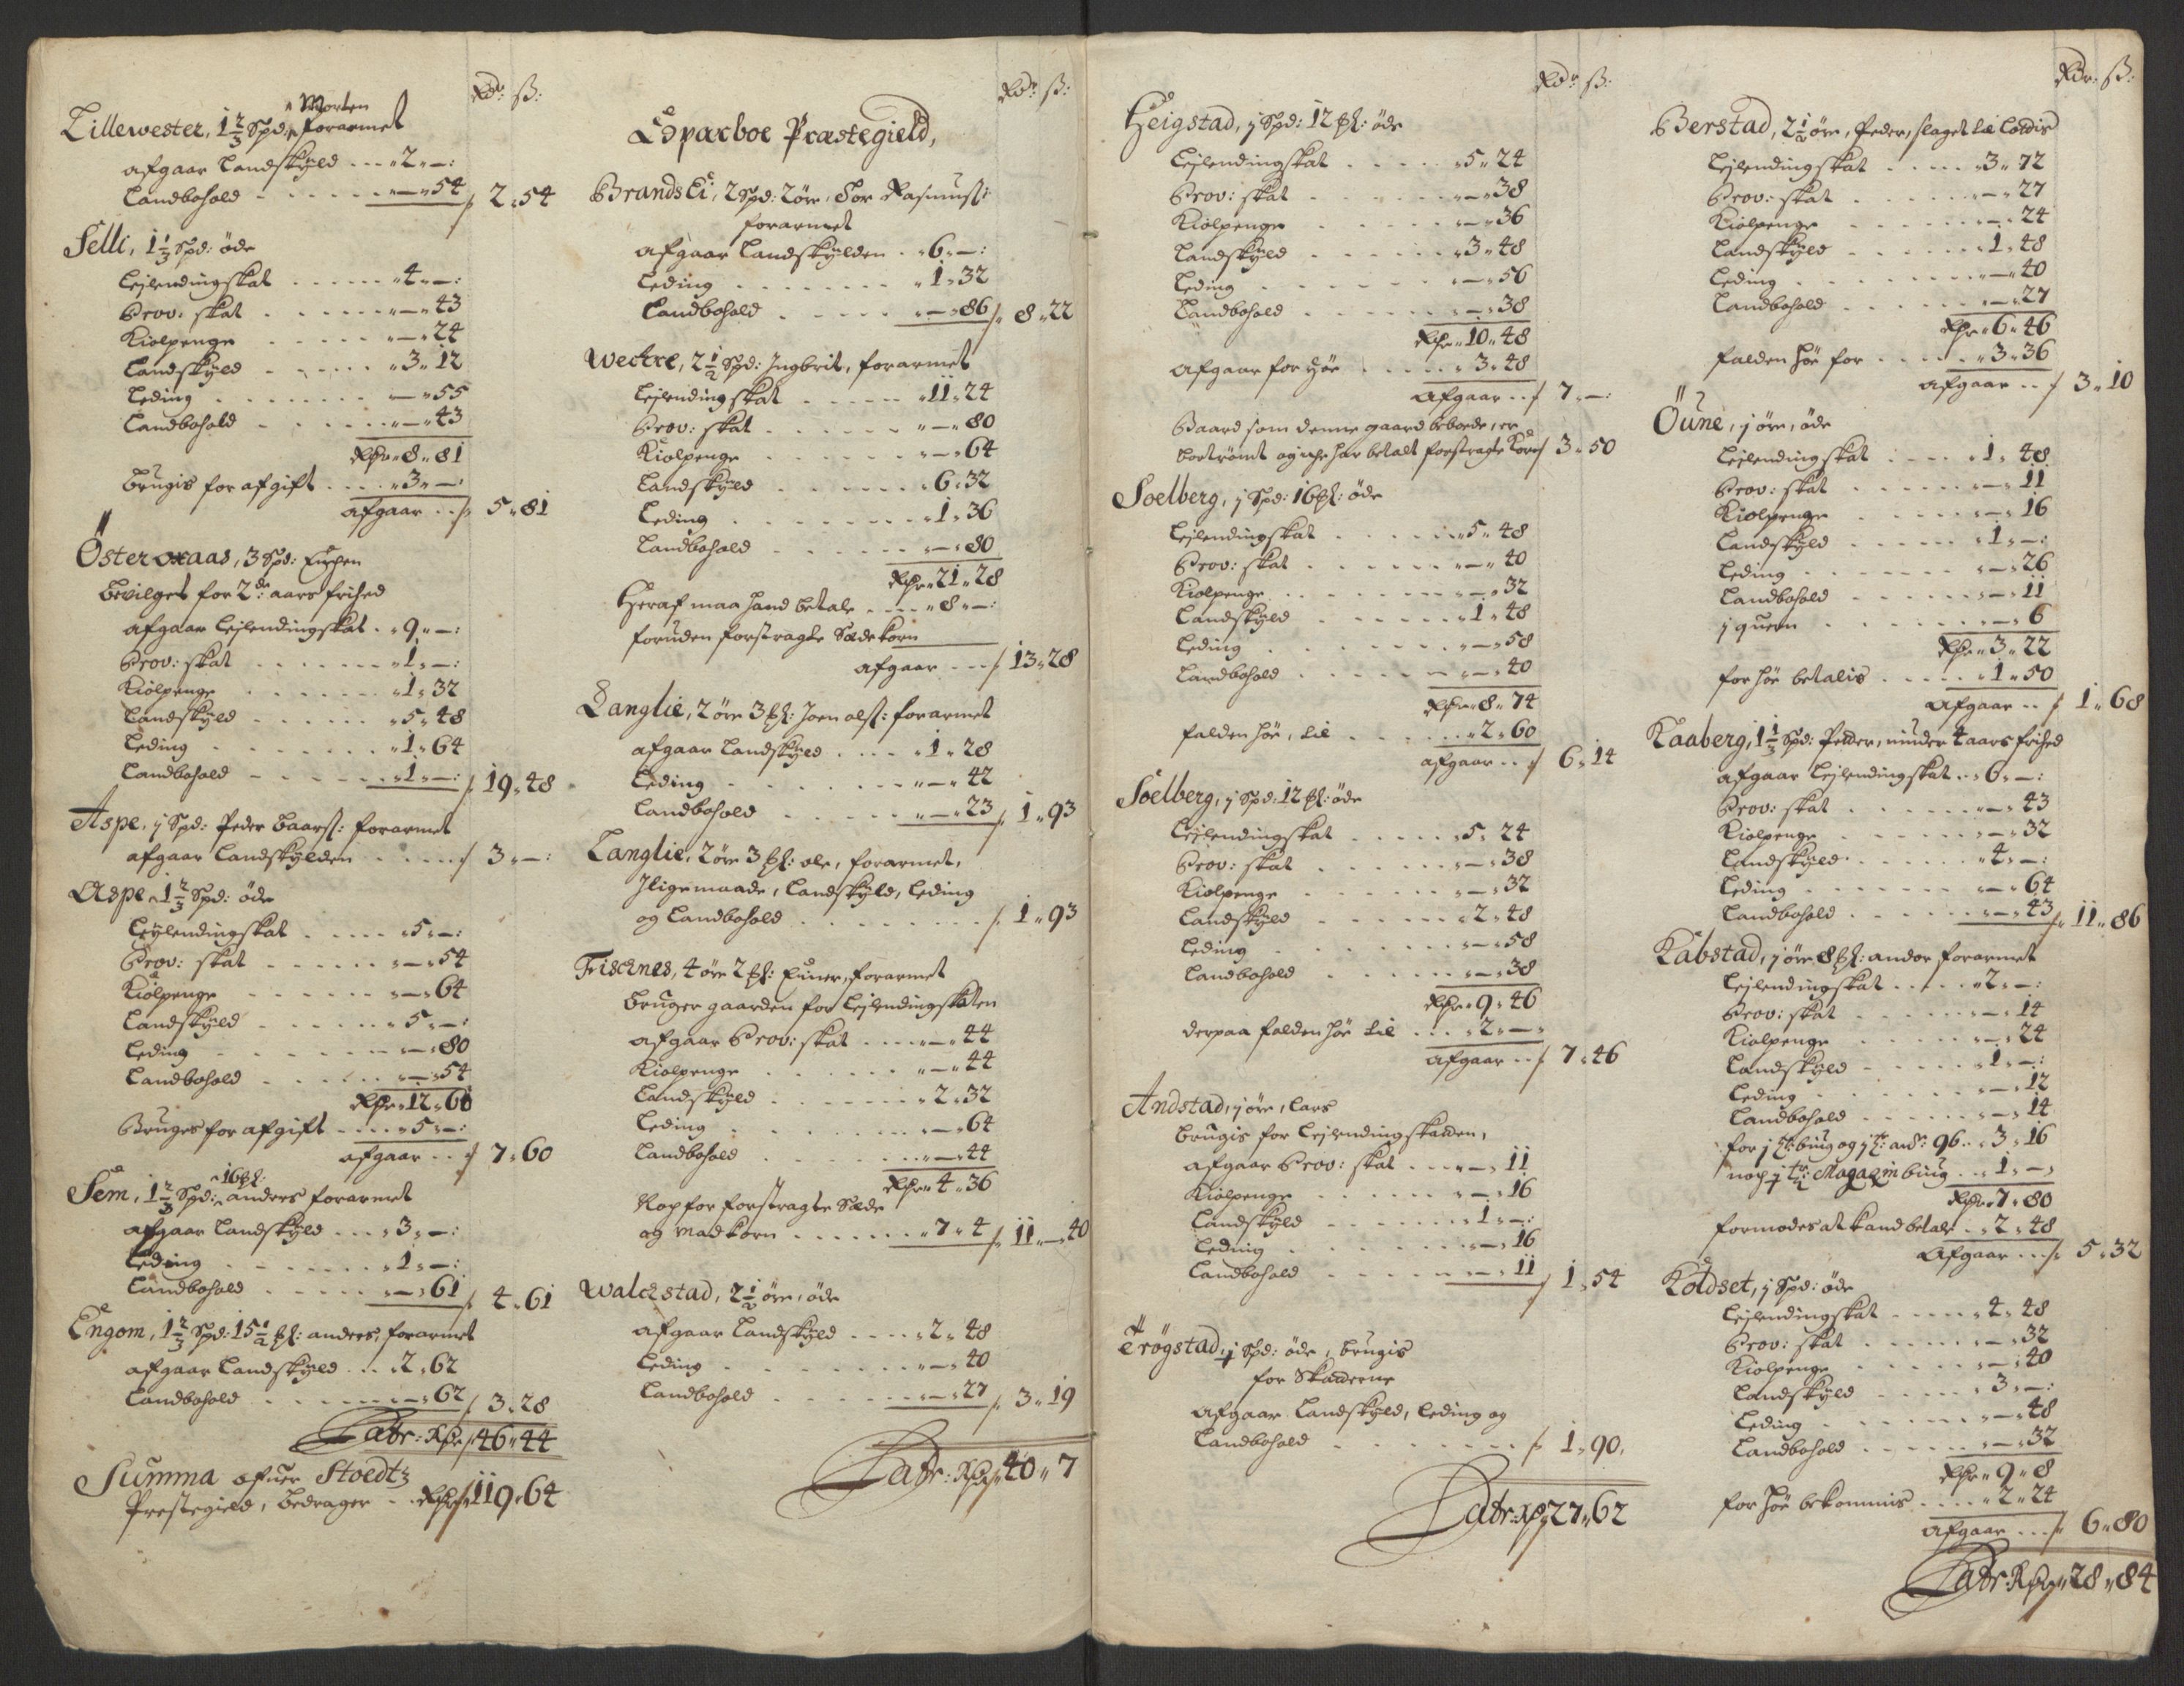 Rdr ß:
Lillewester, 1 2/3 Spd: Morten forarmet
afgaar Landskyld ... „2„—:
Landbohold . . . . . „—„54 / 2„54
Selli, 1 1/3 Spd: öde
Leylendingskat ...... „4„—:
Prov: skat . . . . . . „—„43
Kiolpenge . . . . . „—„24
Landskyld - . . . . . „3„12
Leding . . . . . . . „—„55
Landbohold . . . . . „—„43
Rdr „8„81
brugis for afgift .... „3„—:
afgaar .. / 5„81
Öster aas, 3 Spd:
bevilget for 2de aars frihed
afgaar Leylendingskat . „9„—:
Prov: skat . . . . . . . „1„—:
Kiölpenge . . . . . . „1„32
Landskyld . . . . . . „5„48
Leding . . . . . . . . „1„64
Landbohold - . . . . . „1„—: / 19„48
Aspe, j Spd: Peder Baarß: forarmet
afgaar Landskylden ..... / 3„—:
Aspe 1 2/3 Spd: öde
Leylendingskat ..... „5„—:
Prov: skat . . . . . . „—„54
Kiölpenge . . . . . . „—„64
Landskyld . . . . . . „5„—:
Leding . . . . . . . . „—„80
Landbohold . . . . . . „—„54
Rdr „12„60
Bruges for afgift .... „5„—:
afgaar .. / 7„60
Sem, 1 2/3 Spd: 16 ß: anders forarmet
afgaar Landskyld ... „3„—:
Leding . . . . . . . . „1„—:
Landbohold . . . . . „—„61 / 4„61
Engom, 1 2/3 Spd: 15 1/2 ß: anders, forarmet
afgaar Landskyld ... „2„62
Landbohold . . . . . „—„62 / 3„28
Latr: Rdr / 46„44
Summa ofuer Stoedtz
Prestegield, bedrager - . Rdr / 119„64
Rdr ß:
Sparboe Præstegield,
Brands Ei, 2 Spd: 2 öre, Sor Rasmuß:
forarmet
afgaar Landskylden . „6„—:
Leding . . . . . . . . „1„32
Landbohold . . . . . „—„86 / 8„22
Weckre, 2 1/2 Spd: Ingbrit, forarmet
Leylendingskat ..... „11„24
Prov: skat . . . . . . „—„80
Kiolpenge . . . . . . „—„64
Landskyld . . . . . . „6„32
Leding . . . . . . . . „1„36
Landbohold . . . . . . „—„80
Rdr „21„28
Heraf maa hand betale .... „8„—:
foruden forstragte Sædekorn
afgaar ... / 13„28
Langlie, 2 öre 3 ß: Joen olß: forarmet
afgaar Landskyld .... „1„28
Leding . . . . . . . „—„42
Landbohold . . . . . „—„23 / 1„93
Langlie, 2 öre 3 ß: ole, forarmet,
Iligemaade, Landskyld, Leding
og Landbohold . . . . . . . . / 1„93
Fiscknes, 4 öre 2 ß: Einer, forarmet
bruger gaarden for Leylendingskaten
afgaar Prov: skat .... „—„44
Kiolpenge . . . . . . „—„44
Landskyld . . . . . . „2„32
Leding . . . . . . . . „—„64
Landbohold . . . . . . „—„44
Rdr „4„36
Nok for forstragte Sæde
og madkorn ....... „7„4 / 11„—40
Walckstad, 2 1/2 öre, öde
afgaar Landskyld .... „2„48
Leding . . . . . . . . „—„40
Landbohold . . . . . . „—„27 / 3„19
Latr: Rdr / 40„7
Rdr ß:
Heigstad, j Spd: 12 ß: öde
Leylendingskat . . . . . „5„24
Prov: skat . . . . . . „—„38
Kiolpenge . . . . . . „—„36
Landskyld . . . . . . „3„48
Leding . . . . . . . . „—„56
Landbohold . . . . . . „—„38
Rdr „10„48
afgaar for Höe ..... „3„48
afgaar .. / 7„—:
Baard som denne gaard beboede, er
bortrömt og icke har betalt forstragte Korn / 3„50
Soelberg, j Spd: 16 ß: öde
Leylendingskat . . . . . „5„48
Prov: skat . . . . . . „—„40
Kiolpenge . . . . . . „—„32
Landskyld . . . . . . „1„48
Leding . . . . . . . . „—„58
Landbohold . . . . . . „—„40
Rdr „8„74
falden höe, til ....... „2„60
afgaar .. / 6„14
Soelberg, j Spd: 12 ß: öde
Leylendingskat . . . . . „5„24
Prov: skat . . . . . . „—„38
Kiolpenge . . . . . . „—„32
Landskyld . . . . . . „2„48
Leding . . . . . . . . „—„58
Landbohold . . . . . . „—„38
Rdr „9„46
derpaa falden höe til ... „2„—„
afgaar .. / 7„46
Andstad, j öre, Lars
brugis for Leylendingskatten,
afgaar Prov: skat .... „—„11
Kiolpenge . . . . . . „—„16
Landskyld . . . . . . „1„—:
Leding . . . . . . . . „—„16
Landbohold . . . . . . „—„11 / 1„54
Trögstad, j Spd: öde, brugis
for Skatterne
afgaar Landskyld, Leding og
Landbohold . . . . . . . . / 1„90„
Latr: Rdr / 27„62
Rdr: ß:
Berstad, 2 1/2 öre, Peder, slaget til
Leylendingskat ..... „3„72
Prov: skat . . . . . . „—„27
Kiolpenge . . . . . . „—„24
Landskyld . . . . . . „1„48
Leding . . . . . . . . „—„40
Landbohold . . . . . . „—„27
Rdr „6„46
falden höe for ..... „3„36
afgaar .. / 3„10
Öune, j öre, öde
Leylendingskat . . . . „1„48
Prov: skat . . . . . . „—„11
Kiolpenge . . . . . . „—„16
Landskyld . . . . . . „1„—:
Leding . . . . . . . . „—„26
Landbohold . . . . . . „—„11
j quern . . . . . . . . „—„6
Rdr „3„22
for höe betalis ..... „1„50
afgaar .. / 1„68
Kaaberg, 1 1/3 Spd: Peder, under 4 aars frihed
afgaar Leylendingskat .. „6„—:
Prov: skat . . . . . . „—„43
Kiolpenge . . . . . . „—„32
Landskyld . . . . . . „4„—:
Leding . . . . . . . . „—„64
Landbohold . . . . . . „—„43 / 11„86
Kabstad, j öre 8 ß: andor forarmet
Leylendingskat ..... „2„—:
Prov: skat . . . . . . „—„14
Kiolpenge . . . . . . „—„24
Landskyld . . . . . . „1„—:
Leding . . . . . . . . „—„12
Landbohold . . . . . . „—„14
for j biug og j 96 .. „3„16
noch j t: Magazin biug .. „1„—„
Rdr „7„80
formodes at kand betale .. „2„48
Afgaar ... / 5„32
Koldset, j Spd: öde
Leylendingskat ..... „4„48
Prov: skat . . . . . . „—„32
Kiolpenge . . . . . . „—„40
Landskyld . . . . . . „3„—:
Leding . . . . . . . . „—„48
Landbohold . . . . . . „—„32
Rdr „9„8
for höe bekommis .... „2„24
afgaar ... / 6„80
Latr: Rdr / 28„84